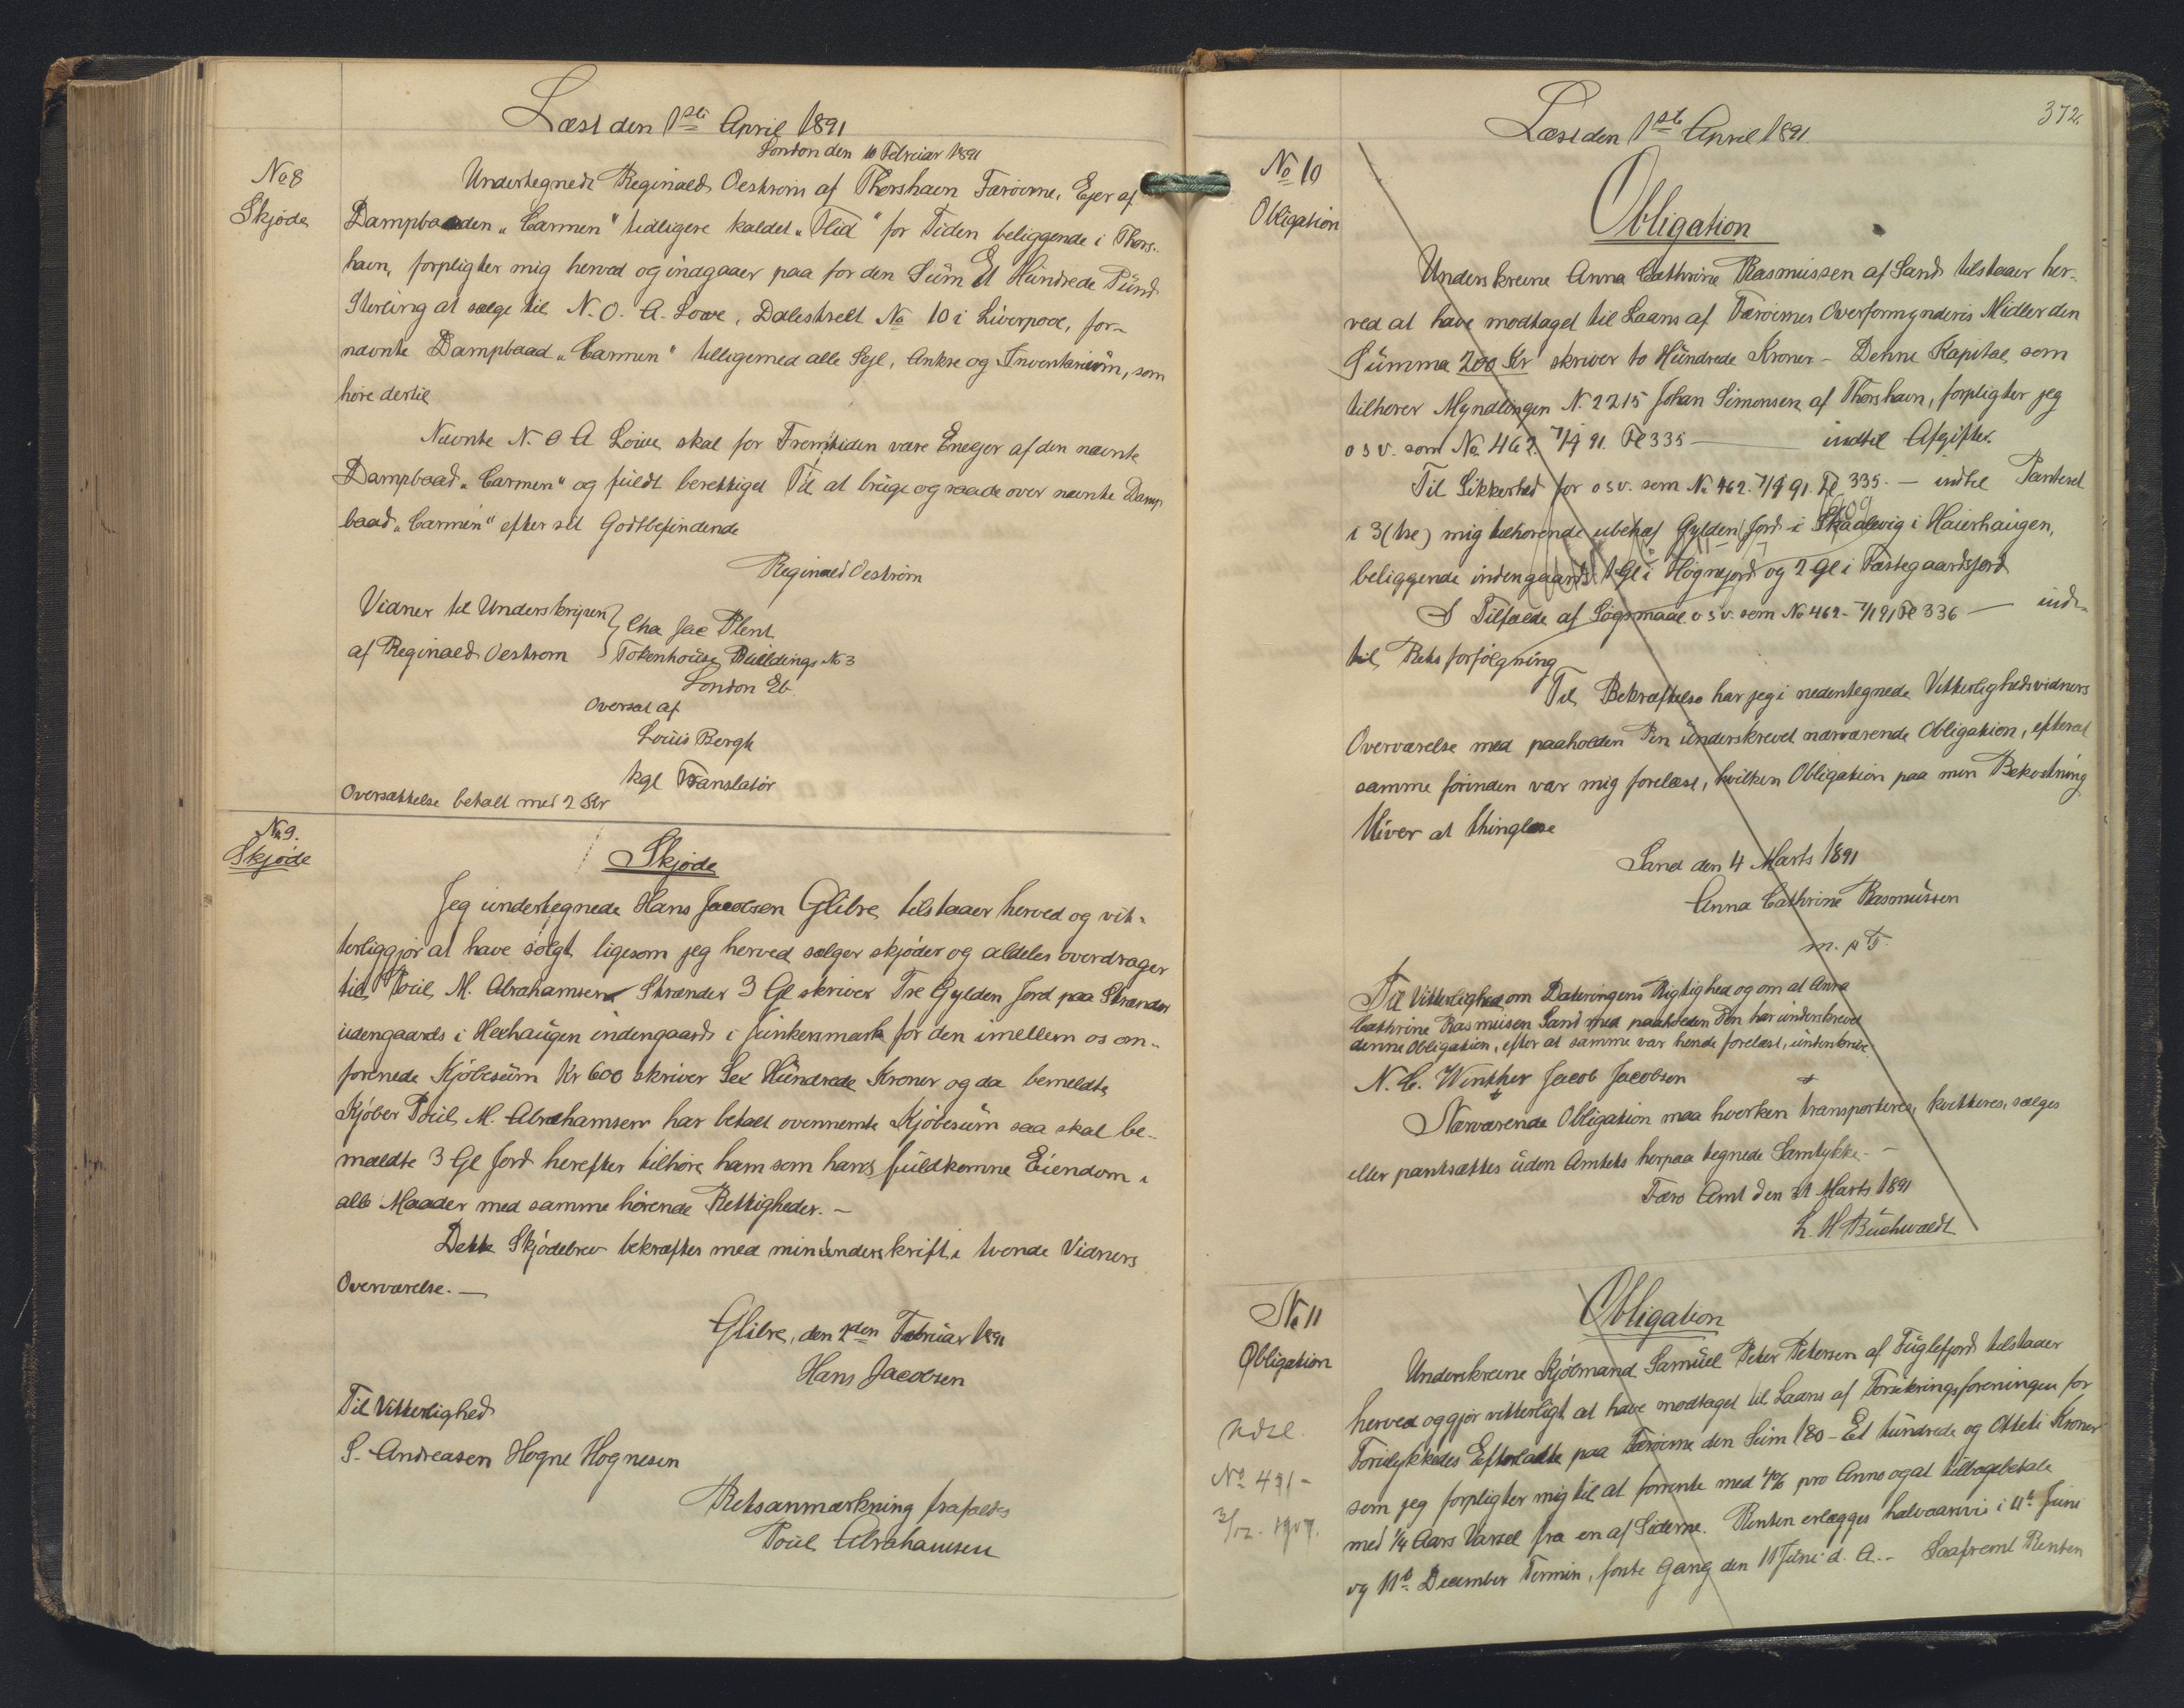 Læst den 1ste April 1891
London den 10 Februar 1891
No 8
Skjøde
Undertegnede Reginald Oestrom af Thorshavn Færøerne, Ejer af
Dampbaaden „Carmen" tidligere kaldet „Flid" for Tiden beliggende i Thors-
havn, forpligter mig herved og indgaaer paa for den Sum Et Hundrede Pund
Sterling at sælge til N. O. A. Lowe, Dalestreet No 10 i Liverpool, for-
nævnte Dampbaad „Carmen" tilligemed alle Sejl, Ankre og Inventarium, som
høre dertil
Nævnte N. O. A Lowe skal for Fremtiden være Eneejer af den nævnte
Dampbaad „Carmen" og fuldt berettiget Til at bruge og raade over nævnte Damp
baad „Carmen" efter sit Godtbefindende
Reginald Oestrom
Vidner til Underskriften
af Reginald Oestrom
Cha Jae Plent
Tokenhouse Buildings No 3
London Ec.
Oversat af
Louis Bergh
kgl Translatør
Oversættelse betalt med 2 Kr
No 9.
Skjøde
Skjøde
Jeg undertegnede Hans Jacobsen Glibre tilstaaer herved og vit-
terliggjør at have solgt ligesom jeg herved sælger skjøder og aldeles overdrager
til Poul M. Abrahamsen Strænder 3 Gl skriver Tre Gylden Jord paa Strænder
udengaards i Heehaugen indengaards i Junkersmark for den imellem os om-
forenede Kjøbesum Kr 600 skriver Sex Hundrede Kroner og da bemeldte
Kjøber Poul M. Abrahamsen har betalt ovennemte Kjøbesum saa skal be-
mældte 3 Gl Jord herefter tilhøre ham som hans fuldkomne Eiendom i
alle Maader med samme hørende Rettigheder. -
Dette Skjødebrev bekræftes med min underskrift i tvende Vidners
Overværelse. -
Glibre, den 2den Februar 1891
Hans Jacobsen
Til Vitterlighed
S. Andreasen Hogne Hognesen
Retsanmærkning frafaldes
Poul Abrahamsen
372.
Læst den 1ste April 1891.
No 10
Obligation
Obligation
Underskrevne Anna Cathrine Rasmussen af Sand tilstaaer her-
ved at have modtaget til Laans af Færøernes Overformynderis Midler den
Summa 200 Kr skriver to Hundrede Kroner - Denne Kapital, som
tilhører Myndlingen N. 2215 Johan Simonsen af Thorshavn, forpligter jeg
o s v. som No. 462. 7/1 91. Fl 335 — indtil Afgifter.
Til Sikkerhed for o s v. som No 462. 7/1 91. Fl 335. - indtil Panteret
i 3 (tre) mig tilhørende ubehæf Gylden Jord i Skaalevig i Haierhaugen,
beliggende indengaards 1 Gl i Høgnejord og 2 Gl i Fæstegaardsjord
I Tilfælde af Søgsmaal o s v. som No 462 - 7/1 91 Fl 336 — ind-
til Retsforfølgning
Til Bekræftelse har jeg i nedentegnede Vitterlighedsvidners
Overværelse med paaholden Pen underskrevet nærværende Obligation, efterat
samme forinden var mig forelæst, hvilken Obligation paa min Bekostning
bliver at thinglæse
Sand den 4 Marts 1891
Anna Cathrine Rasmussen
m. p F.
Til Vitterlighed om Dateringens Rigtighed og om at Anna
Cathrine Rasmussen Sand med paaholden Pen har underskrevet
denne Obligation, efter at samme var hende forelæst, underskrive
N. C. Winther Jacob Jacobsen
Nærværende Obligation maa hverken transporteres, kvitteres, sælges
eller pantsættes uden Amtets herpaa tegnede Samtykke. -
Færø Amt den 31 Marts 1891
L. H Buchwaldt
No 11
Obligation
Obligation
Underskrevne Kjøbmand Samuel Peter Petersen af Fuglefjord tilstaaer
herved og gjør vitterligt at have modtaget til Laans af Forsikringsforeningen for
Forulykkedes Efterladte paa Færøerne den Sum 180 - Et hundrede og Otteti Kroner
som jeg forpligter mig til at forrente med 4% pro Anno og at tilbagebetale
med 1/4 Aars Varsel fra en af Siderne. Renten erlægges halvaarsvis i 11te Juni
og 11te December Termin, første Gang den 11 Juni d. A. - Saafremt Renten
No 431 -
3/12. 1907.